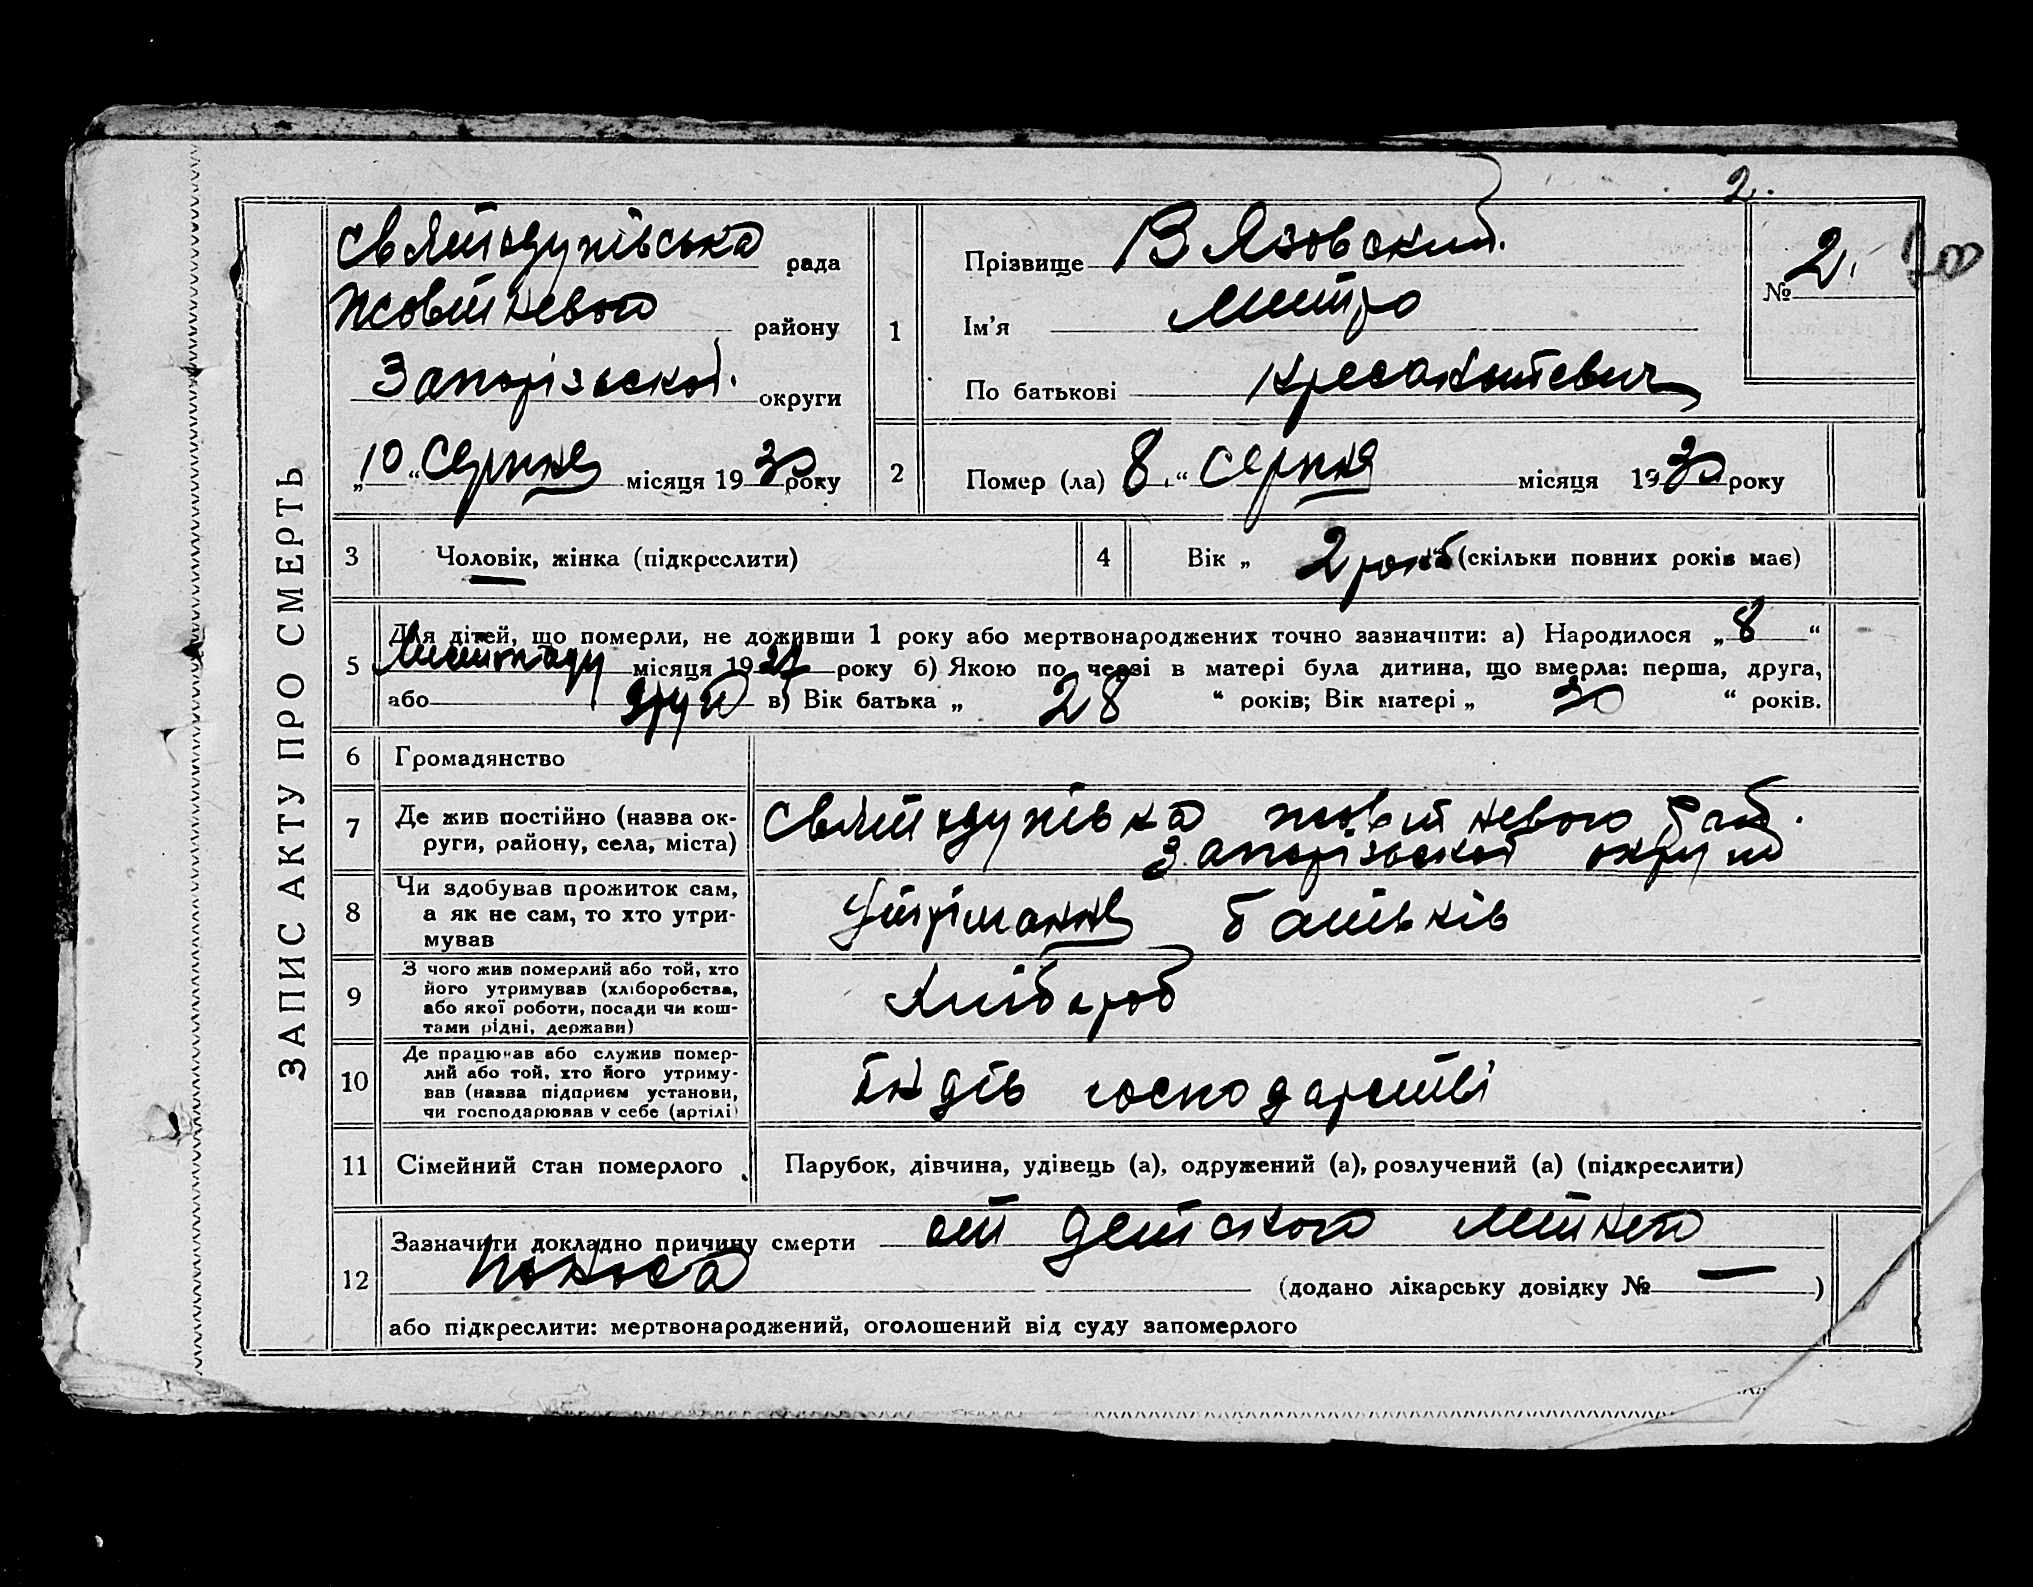 2.
ЗАПИС АКТУ ПРО СМЕРТЬ
Святодухівська рада
Жовтневого району
Запорізької округи
„10“ Серпня місяця 1930 року
1
Прізвище Вязовский
Ім'я Митро
По батькові
№ 2.
2
Помер (ла) 8 “ Серпня місяця 1930 року
3
Чоловік, жінка (підкреслити)
4
Вік „ 2 роки “ (скільки повних років має)
5
Для дітей, що померли, не доживши 1 року або мертвонароджених точно зазначити: а) Народилося „ 8 “
Листопаду місяця 19 року б) Якою по черзі в матері була дитина, що вмерла: перша, друга,
або другій в) Вік батька „ 28 “ років; Вік матері „ 30 “ років.
6
Громадянство
7
Де жив постійно (назва округи, району, села, міста)
Святодухівка Жовтневого рай.
Запорізької округи
8
Чи здобував прожиток сам,
а як не сам, то хто утри-
мував
Утрімання батьків
9
З чого жив померлий або той, хто
його утримував (хліборобства,
або якої роботи, посади чи кош-
тами рідні, держави)
Хлібороб
10
Де працював або служив помер-
лий або той, хто його утриму-
вав (назва підприєм установи,
чи господарював у себе (артілі)
Індів господарстві
11
Сімейний стан померлого
Парубок, дівчина, удівець (а), одружений (а), розлучений (а) (підкреслити)
12
Зазначити докладно причину смерти от детского летнего
поноса (додано лікарську довідку № — )
або підкреслити: мертвонароджений, оголошений від суду запомерлого